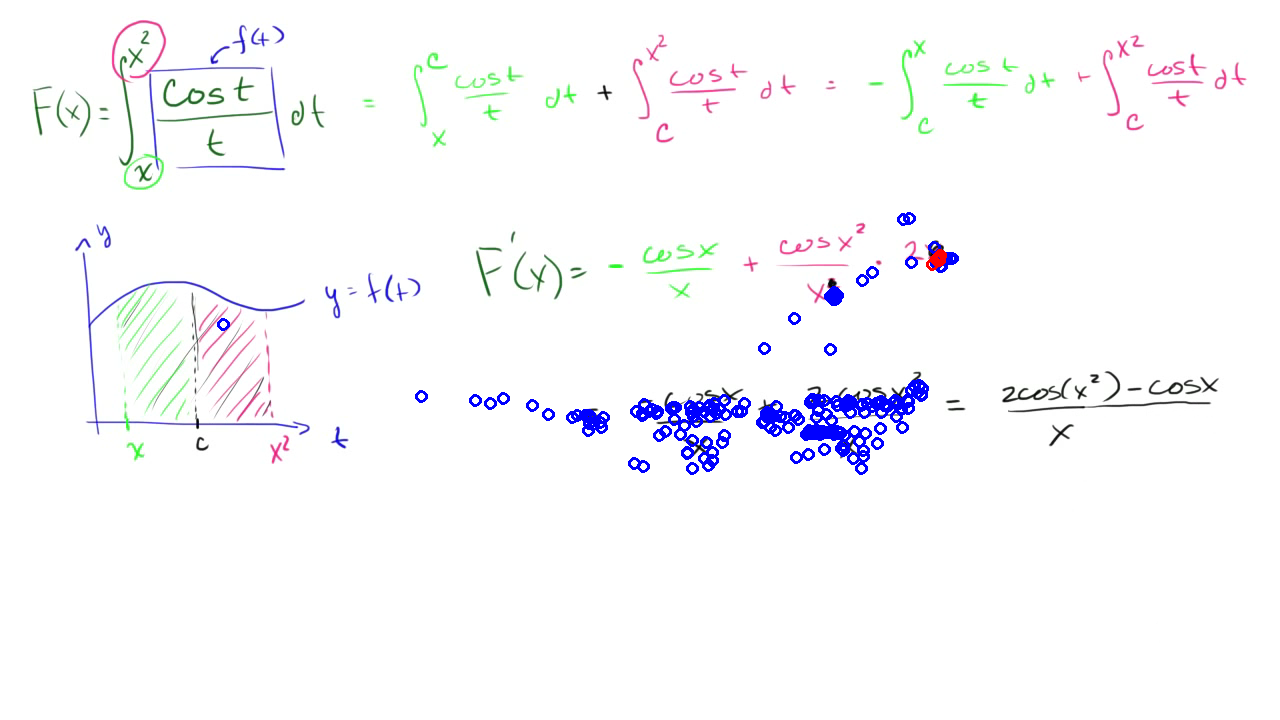 F(x) = ∫_x^{x²} cos t / t dt = ∫_x^c cos t / t dt + ∫_c^{x²} cos t / t dt = - ∫_c^x cos t / t dt + ∫_c^{x²} cos t / t dt
f(t)
y
y = f(t)
x c x² t
F'(x) = - cos x / x + cos x² / x · 2
= 2cos(x²) - cos x / x